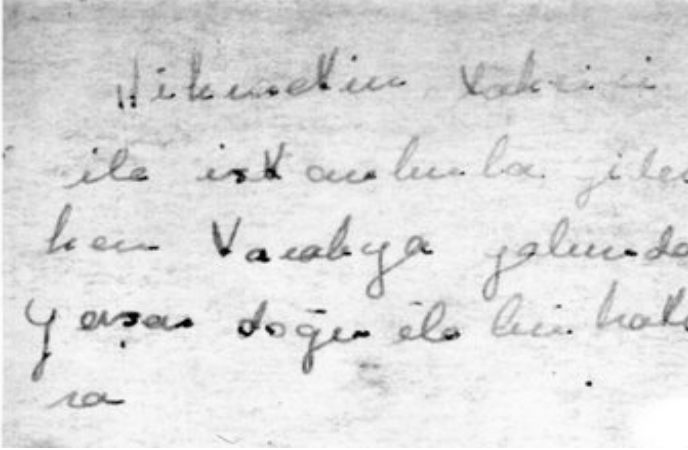 Hikmetin taksisi
ile istanbula gider
ken Tarabya yolunda
Yaşar doğu ile bir hatı
ra